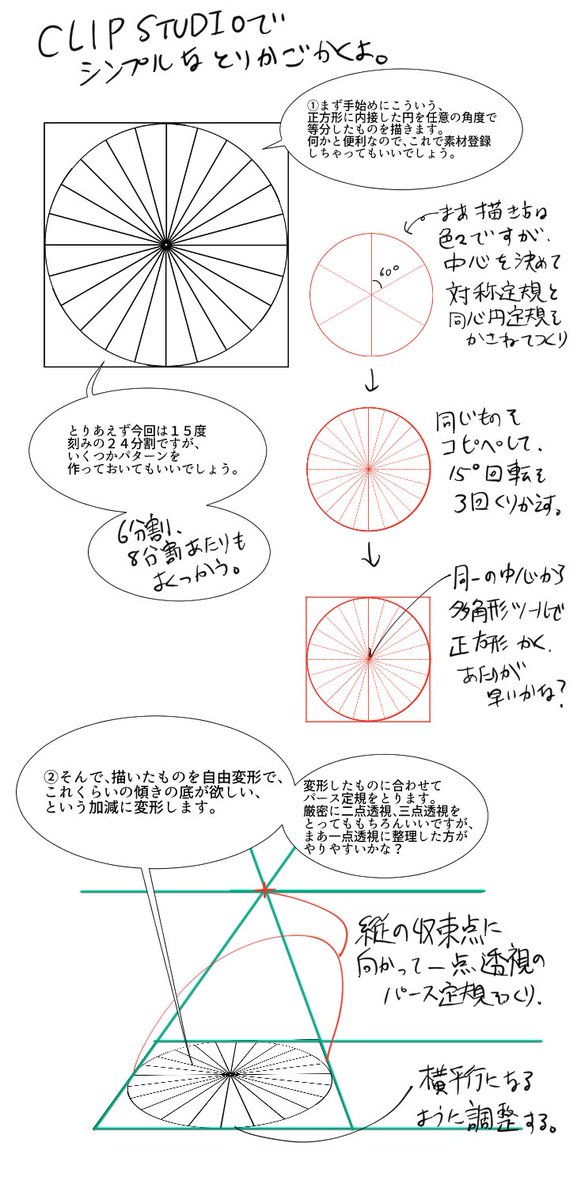 CLIP STUDIOで
シンプルなとりかごかくよ。
①まず手始めにこういう、
正方形に内接した円を任意の角度で
等分したものを描きます。
何かと便利なので、これで素材登録
しちゃってもいいでしょう。
まあ描き方は
色々ですが、
中心を決めて
対称定規と
同心円定規を
かさねてつくり
60°
とりあえず今回は15度
刻みの24分割ですが、
いくつかパターンを
作っておいてもいいでしょう。
6分割、
8分割あたりも
よくつかう。
同じものを
コピペして、
15°回転を
3回くりかえす。
同一の中心から
多角形ツールで
正方形かく、
あたりが
早いかな?
②そんで、描いたものを自由変形で、
これくらいの傾きの底が欲しい、
という加減に変形します。
変形したものに合わせて
パース定規をとります。
厳密に二点透視、三点透視を
とってももちろんいいですが、
まあ一点透視に整理した方が
やりやすいかな?
縦の収束点に
向かって一点透視の
パース定規をつくり、
横平行になる
ように調整する。